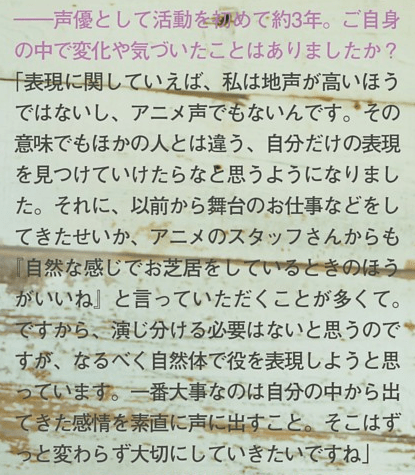 ──声優として活動を初めて約3年。ご自身
の中で変化や気づいたことはありましたか？
「表現に関していえば、私は地声が高いほう
ではないし、アニメ声でもないんです。その
意味でもほかの人とは違う、自分だけの表現
を見つけていけたらなと思うようになりまし
た。それに、以前から舞台のお仕事などをし
てきたせいか、アニメのスタッフさんからも
『自然な感じでお芝居をしているときのほう
がいいね』と言っていただくことが多くて。
ですから、演じ分ける必要はないと思うので
すが、なるべく自然体で役を表現しようと思
っています。一番大事なのは自分の中から出
てきた感情を素直に声に出すこと。そこはず
っと変わらず大切にしていきたいですね」